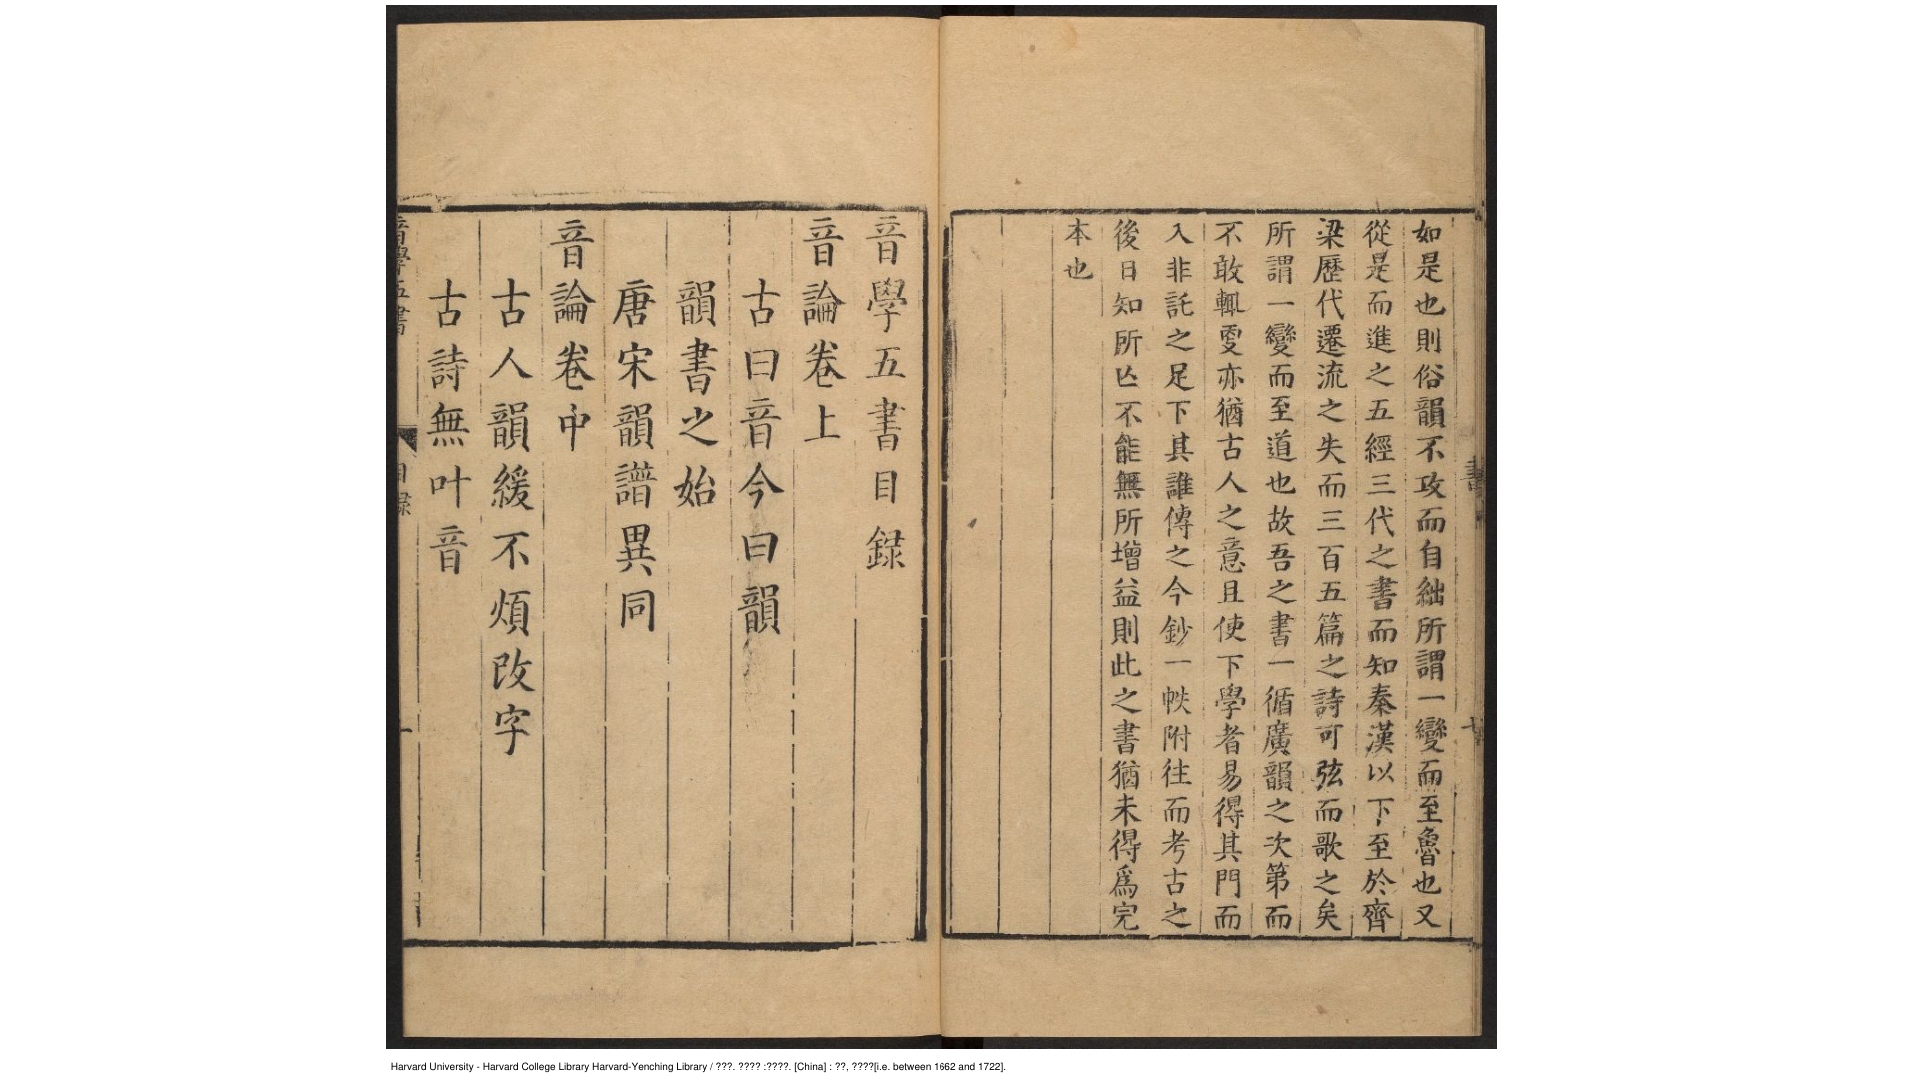 如是也則俗韻不攻而自絀所謂一變而至魯也又
從是而進之五經三代之書而知秦漢以下至於齊
梁歷代遷流之失而三百五篇之詩可弦而歌之矣
所謂一變而至道也故吾之書一循廣韻之次第而
不敢輒更亦猶古人之意且使下學者易得其門而
入非託之足下其誰傳之今鈔一帙附往而考古之
後日知所亾不能無所增益則此之書猶未得爲完
本也
音學五書目録
音論卷上
古曰音今曰韻
韻書之始
唐宋韻譜異同
音論卷中
古人韻緩不煩改字
古詩無叶音
音學五書
目録
一
Harvard University - Harvard College Library Harvard-Yenching Library / ???. ???? :????. [China] : ??, ????[i.e. between 1662 and 1722].